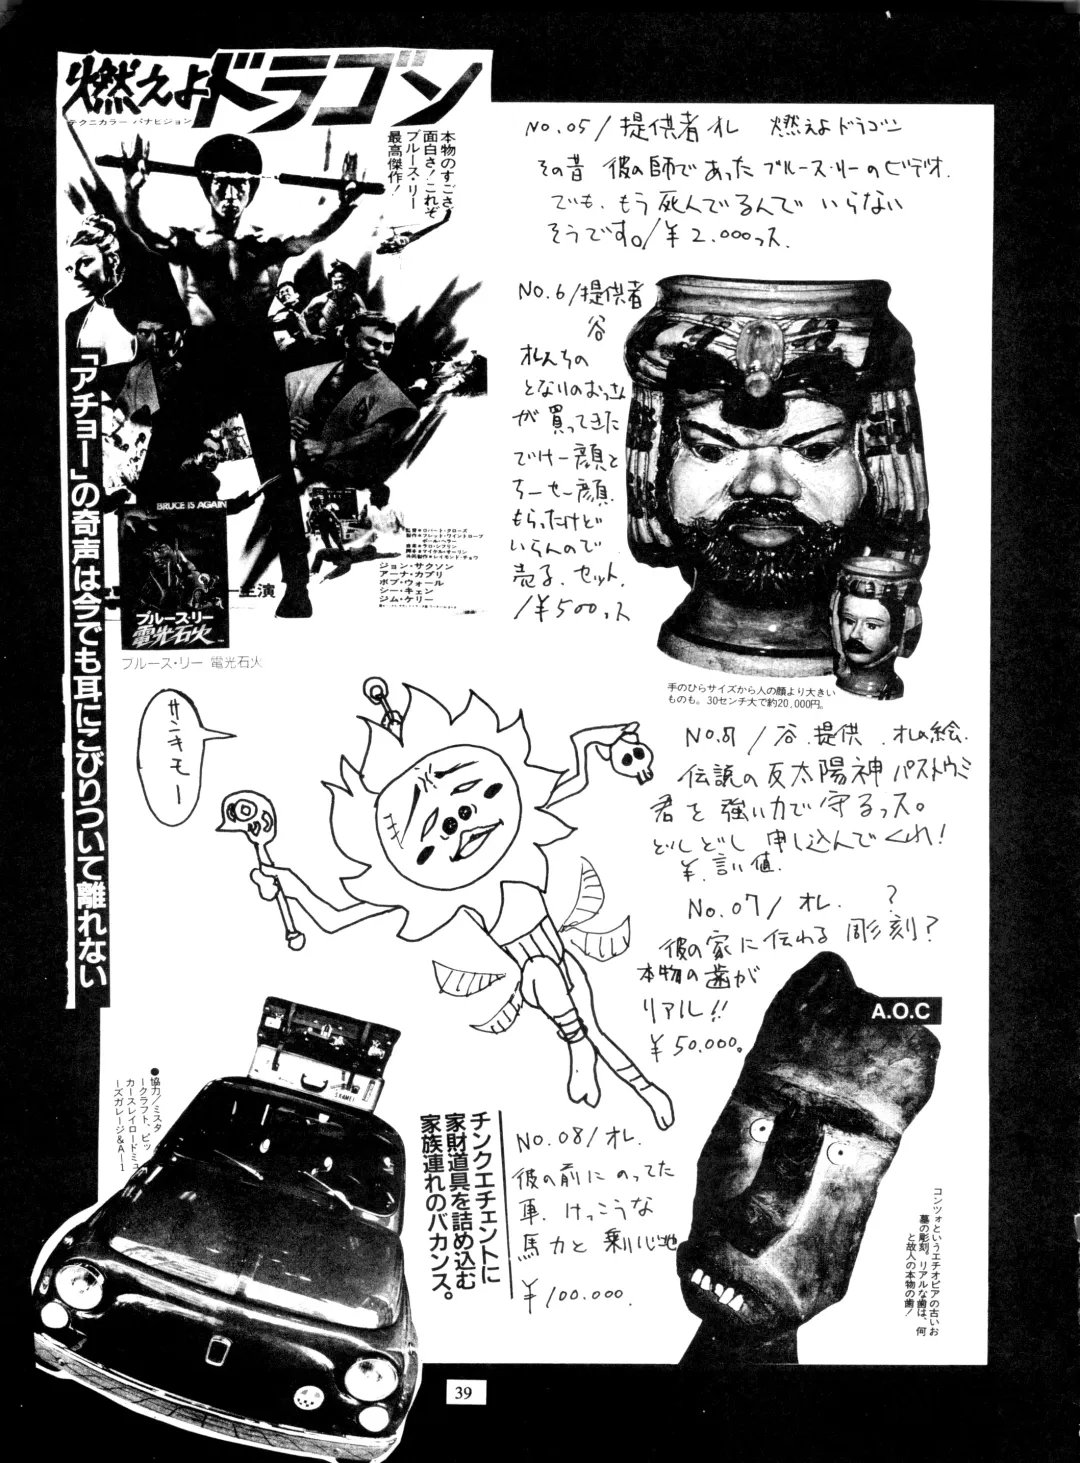 燃えよドラゴン
テクニカラー パナビジョン
本物のすごさ
面白さ!これぞ
ブルース・リー
最高傑作!
「アチョー」の奇声は今でも耳にこびりついて離れない
BRUCE IS AGAIN
ブルース・リー
電光石火
ー主演
監督●ロバート・クローズ
製作●フレッド・ワイントローブ
ポール・ヘラー
音楽●ラロ・シフリン
脚本●マイケル・オーリン
共同製作●レイモンド・チョウ
ジョン・サクソン
アーナ・カプリ
ボブ・ウォール
シー・キエン
ジム・ケリー
ブルース・リー 電光石火
No.05/提供者オレ 燃えよドラゴン
その昔 彼の師であったブルース・リーのビデオ.
でも、もう死んでるんで いらない
そうです。/¥2.000っス.
No.6/提供者
谷
オレんちの
となりのおっさん
が買ってきた
でけー顔と
ちーせー顔.
もらったけど
いらんので
売る、セット.
/¥500っス
手のひらサイズから人の顔より大きい
ものも。30センチ大で約20,000円。
サンキュー
No.8/谷.提供.オレの絵.
伝説の反太陽神パストウミ
君を強い力で守るっス。
どしどし申し込んでくれ!
¥.言い値.
No.07/オレ. ?
彼の家に伝わる彫刻?
本物の歯が
リアル!!
¥50.000。
A.O.C
コンツォというエチオピアの古いお
墓の彫刻。リアルな歯は、何
と故人の本物の歯!
●協力/ミスタ
ークラフト、ビッ
カースレイロードミュ
ーズガレージ&A—1
チンクエチェントに
家財道具を詰め込む
家族連れのバカンス。
No.08/オレ.
彼の前にのってた
車.けっこうな
馬力と乗り心地
¥100.000.
39